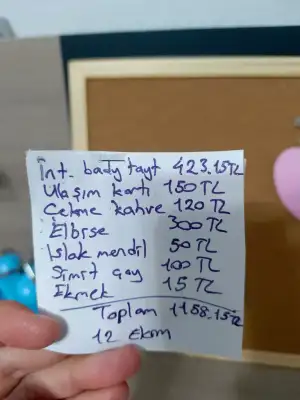 İnt. bady tayt 423.15 TL
Ulaşım kartı 150 TL
Çekme kahve 120 TL
Elbise 300 TL
Islak mendil 50 TL
Simit çay 100 TL
Ekmek 15 TL
Toplam 1158.15 TL
12 Ekim